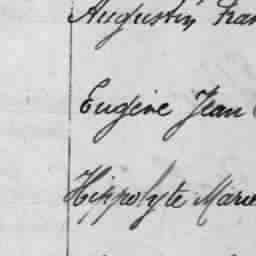 Augustin Fran
Eugène Jean
Hippolyte Marie